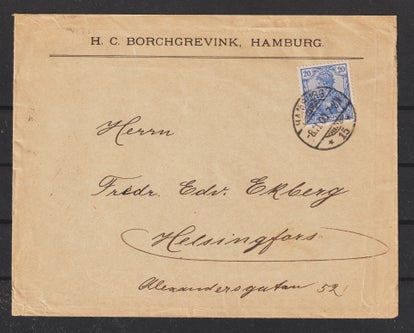 H. C. BORCHGREVINK, HAMBURG.
20 20
HAMBURG
15
Herrn
Fredr. Edv. Ekberg
Helsingfors
Alexandersgatan 52